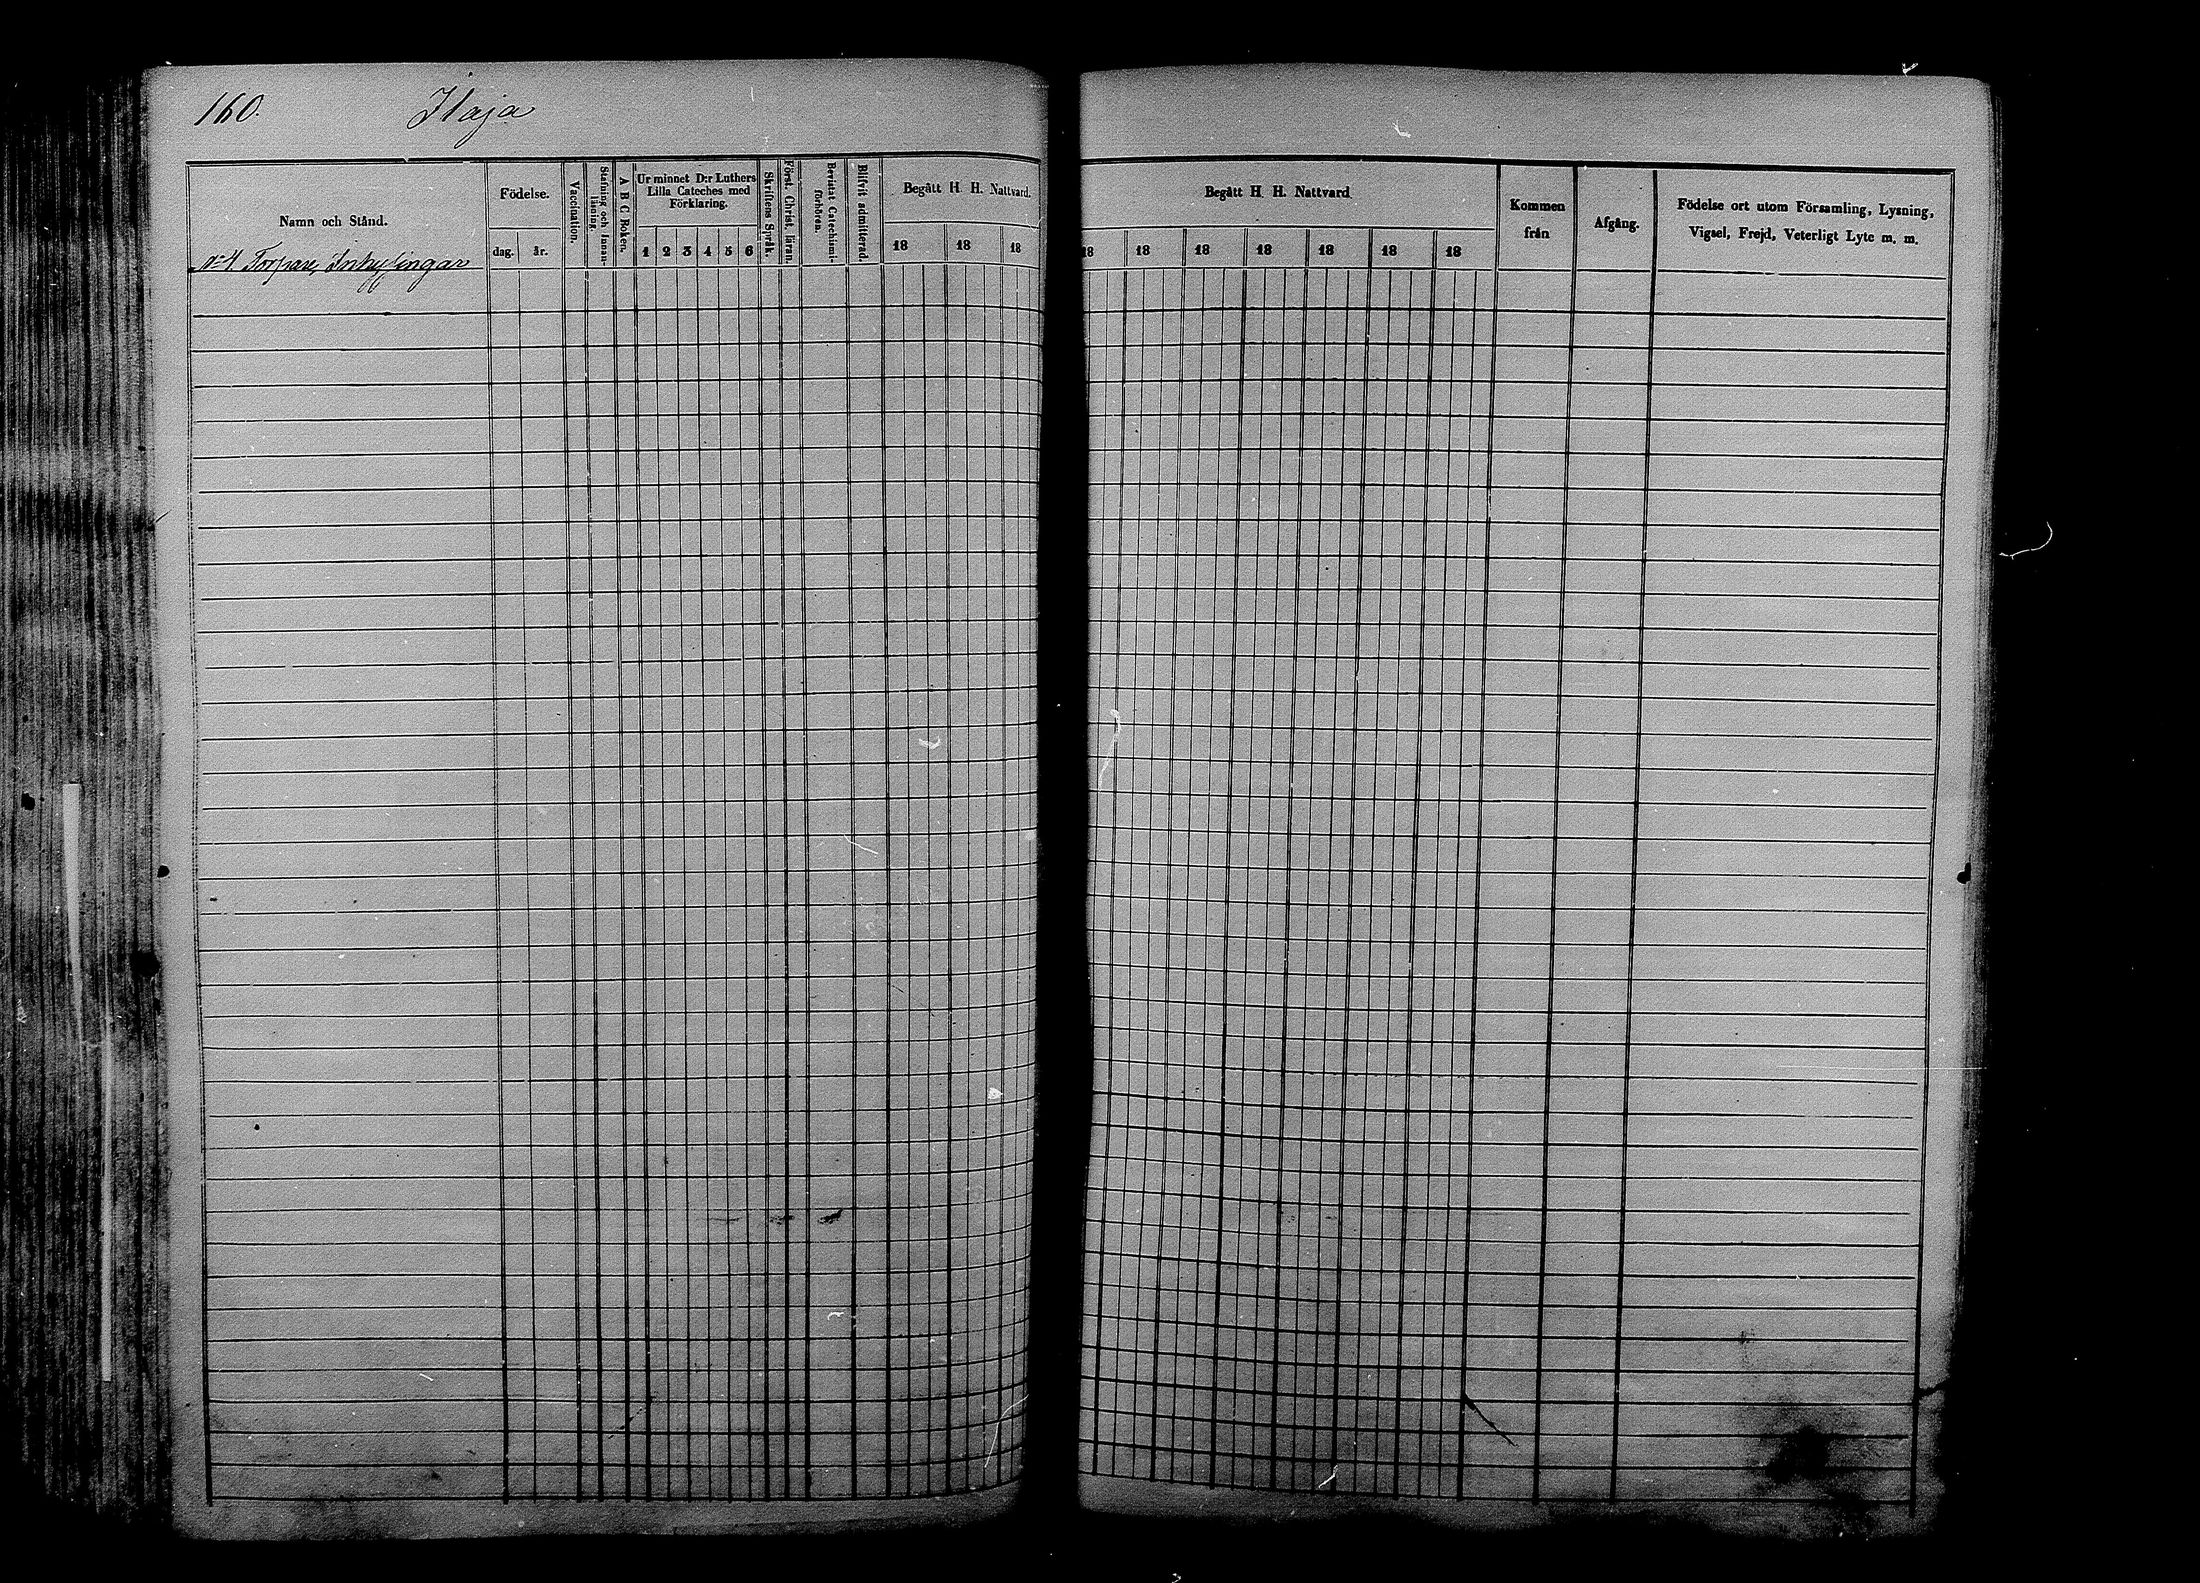 160. Ilaja
Namn och Stånd.
Födelse.
dag. år.
Vaccination.
Stafning och Innan-
läsning.
A B C Boken.
Ur minnet D:r Luthers
Lilla Cateches med
Förklaring.
1 2 3 4 5 6
Skriftens Språk.
Först. Christ. läran.
Bevistat Catechismi-
förhören.
Blifvit admitterad.
Begått H. H. Nattvard.
18 18 18
Begått H. H. Nattvard.
18 18 18 18 18 18 18
Kommen
från
Afgång.
Födelse ort utom Församling, Lysning,
Vigsel, Frejd, Veterligt Lyte m. m.
N:o 4 Torpare, Inhysingar